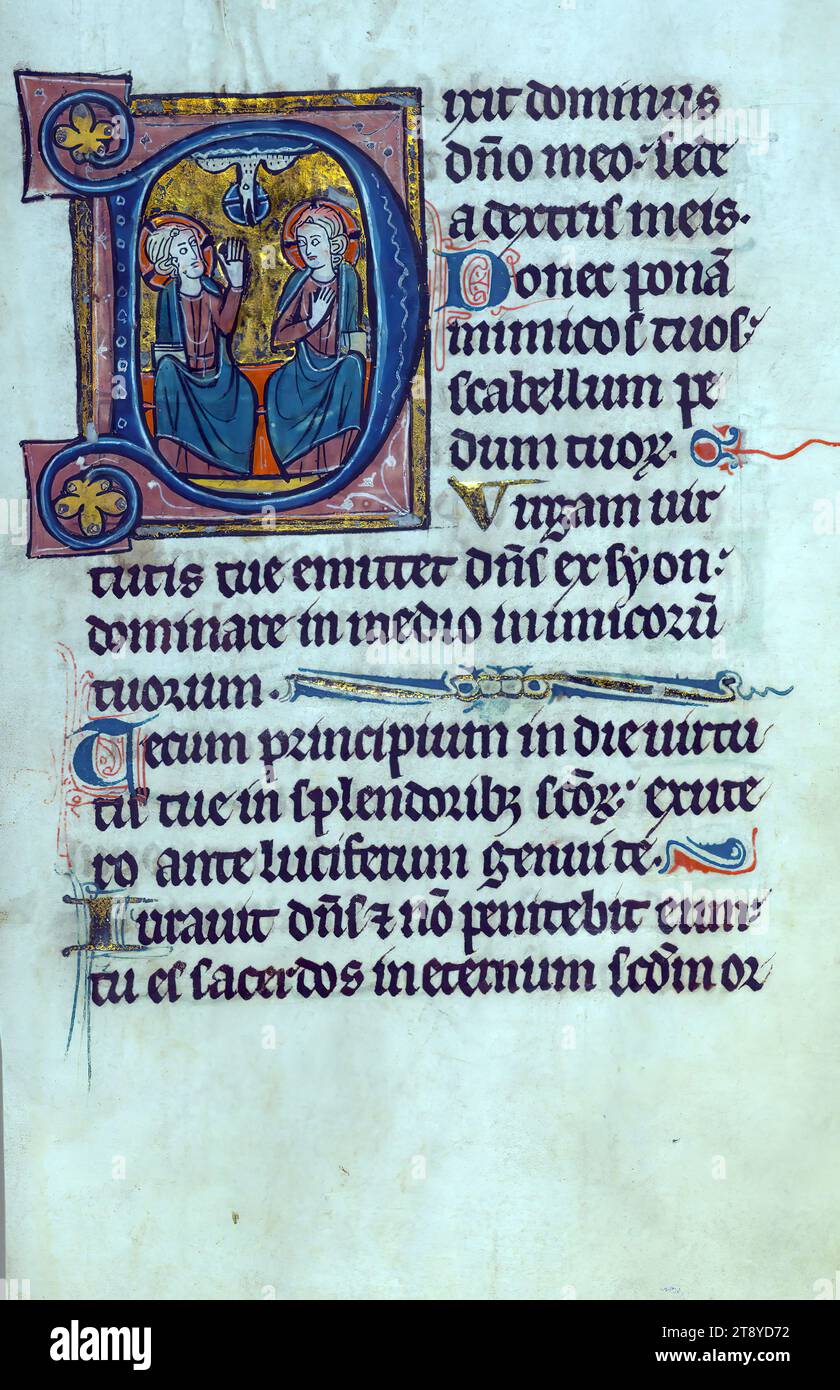 Dixit dominus
dño meo: sede
a dextris meis.
Donec ponã
inimicos tuos:
scabellum pe
dum tuoꝝ.
Virgam uir
tutis tue emittet dñs ex syon:
dominare in medio inimicorũ
tuorum.
Tecum principium in die uirtu
tis tue in splendoribꝫ scõꝝ: ex ute
ro ante luciferum genui te.
Iurauit dñs ⁊ nõ penitebit eum:
tu es sacerdos in eternum scd̃m or
alamy
Image ID: 2T8YD72
www.alamy.com